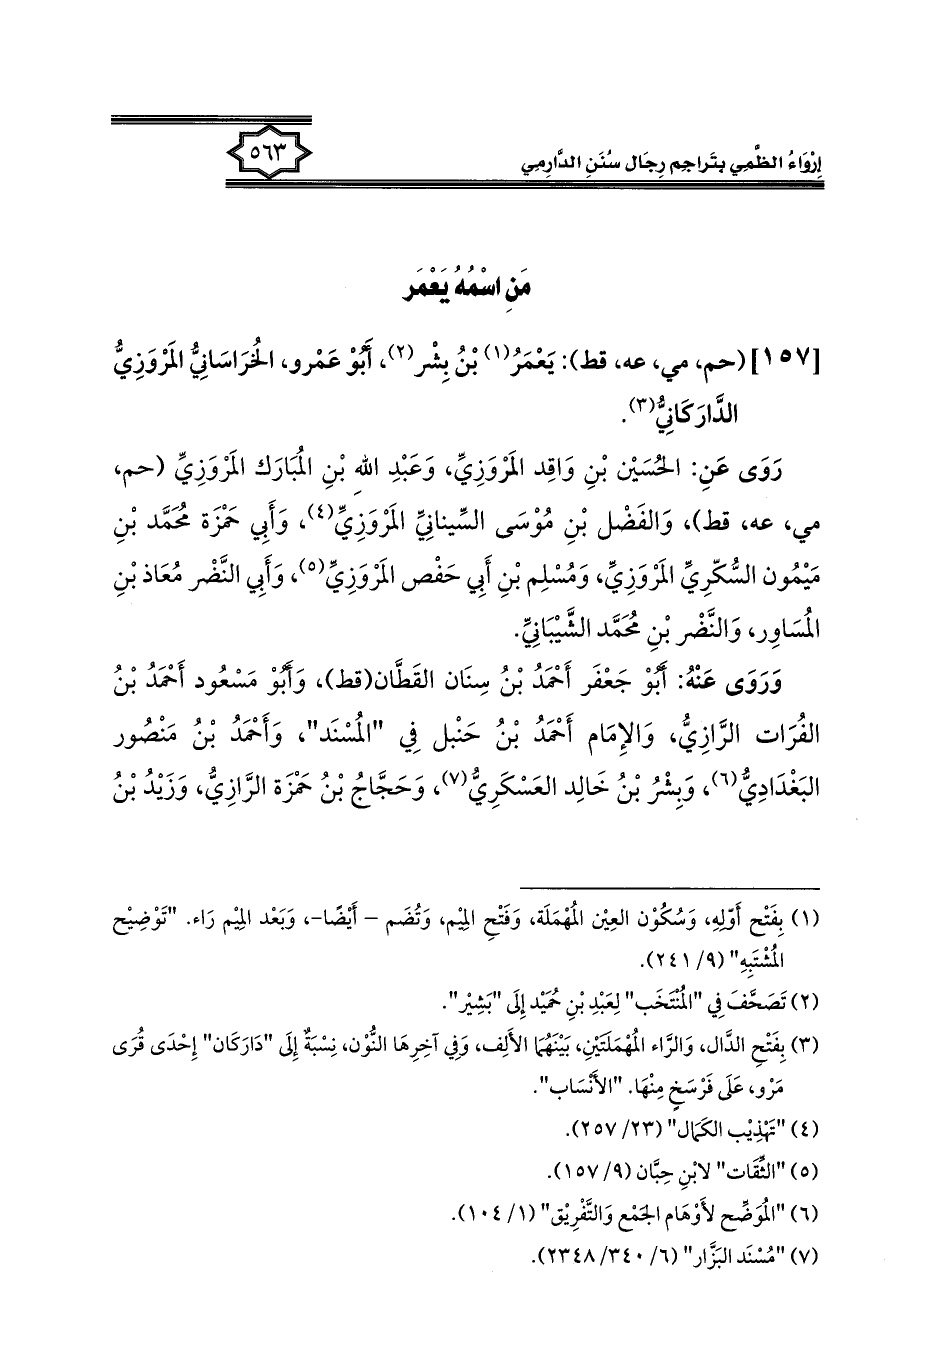 إِرْوَاءُ الظَّمِي بِتَراجِم رِجَال سُنَنِ الدَّارِمِي
٥٦٣
مَنِ اسْمُهُ يَعْمَر
[١٥٧] (حم، مي، عه، قط): يَعْمَرُ(١) بْنُ بِشْر(٢)، أَبُوْ عَمْرو، الخُرَاسَانِيُّ المَرْوَزِيُّ
الدَّارَكَانِيُّ(٣).
رَوَى عَنِ: الحُسَيْن بْنِ وَاقِد المَرْوَزِيِّ، وَعَبْدِ اللهِ بْنِ المُبَارَك المَرْوَزِيِّ (حم،
مي، عه، قط)، وَالفَضْل بْنِ مُوْسَى السِّينانِيِّ المَرْوَزِيِّ(٤)، وَأَبِي حَمْزَة مُحَمَّد بْنِ
مَيْمُون السُّكَّرِيِّ المَرْوَزِيِّ، وَمُسْلِم بْنِ أَبِي حَفْص المَرْوَزِيِّ(٥)، وَأَبِي النَّضْر مُعَاذ بْنِ
المُسَاوِر، وَالنَّضْر بْنِ مُحَمَّد الشَّيْبَانِيِّ.
وَرَوَى عَنْهُ: أَبُوْ جَعْفَر أَحْمَدُ بْنُ سِنَان القَطَّان(قط)، وَأَبُوْ مَسْعُود أَحْمَدُ بْنُ
الفُرَات الرَّازِيُّ، وَالإِمَام أَحْمَدُ بْنُ حَنْبل فِي "المُسْنَد"، وَأَحْمَدُ بْنُ مَنْصُور
البَغْدَادِيُّ(٦)، وَبِشْرُ بْنُ خَالِد العَسْكَرِيُّ(٧)، وَحَجَّاجُ بْنُ حَمْزَة الرَّازِيُّ، وَزَيْدُ بْنُ
(١) بِفَتْح أَوّلِهِ، وَسُكُوْن العِيْن المُهْمَلَة، وَفَتْحِ المِيْم، وَتُضَم – أَيْضًا-، وَبَعْد المِيْم رَاء. "تَوْضِيْح
المُشْتَبِهِ" (٩/ ٢٤١).
(٢) تَصَحَّفَ فِي "المُنْتَخَب" لِعَبْدِ بْنِ حُمَيْد إِلَى "بَشِيْر".
(٣) بِفَتْحِ الدَّال، وَالرَّاء المُهْمَلَتَيْن، بَيْنَهُمَا الأَلِف، وَفِي آخِرِهَا النُّوْن، نِسْبَةٌ إِلَى "دَارَكَان" إِحْدَى قُرَى
مَرْو، عَلَى فَرْسَخٍ مِنْهَا. "الأَنْسَاب".
(٤) "تَهْذِيْب الكَمَال" (٢٣/ ٢٥٧).
(٥) "الثِّقَات" لابْنِ حِبَّان (٩/ ١٥٧).
(٦) "المُوَضِّح لأَوْهَام الجَمْع وَالتَّفْرِيْق" (١/ ١٠٤).
(٧) "مُسْنَد البَزَّار" (٦/ ٣٤٠/ ٢٣٤٨).